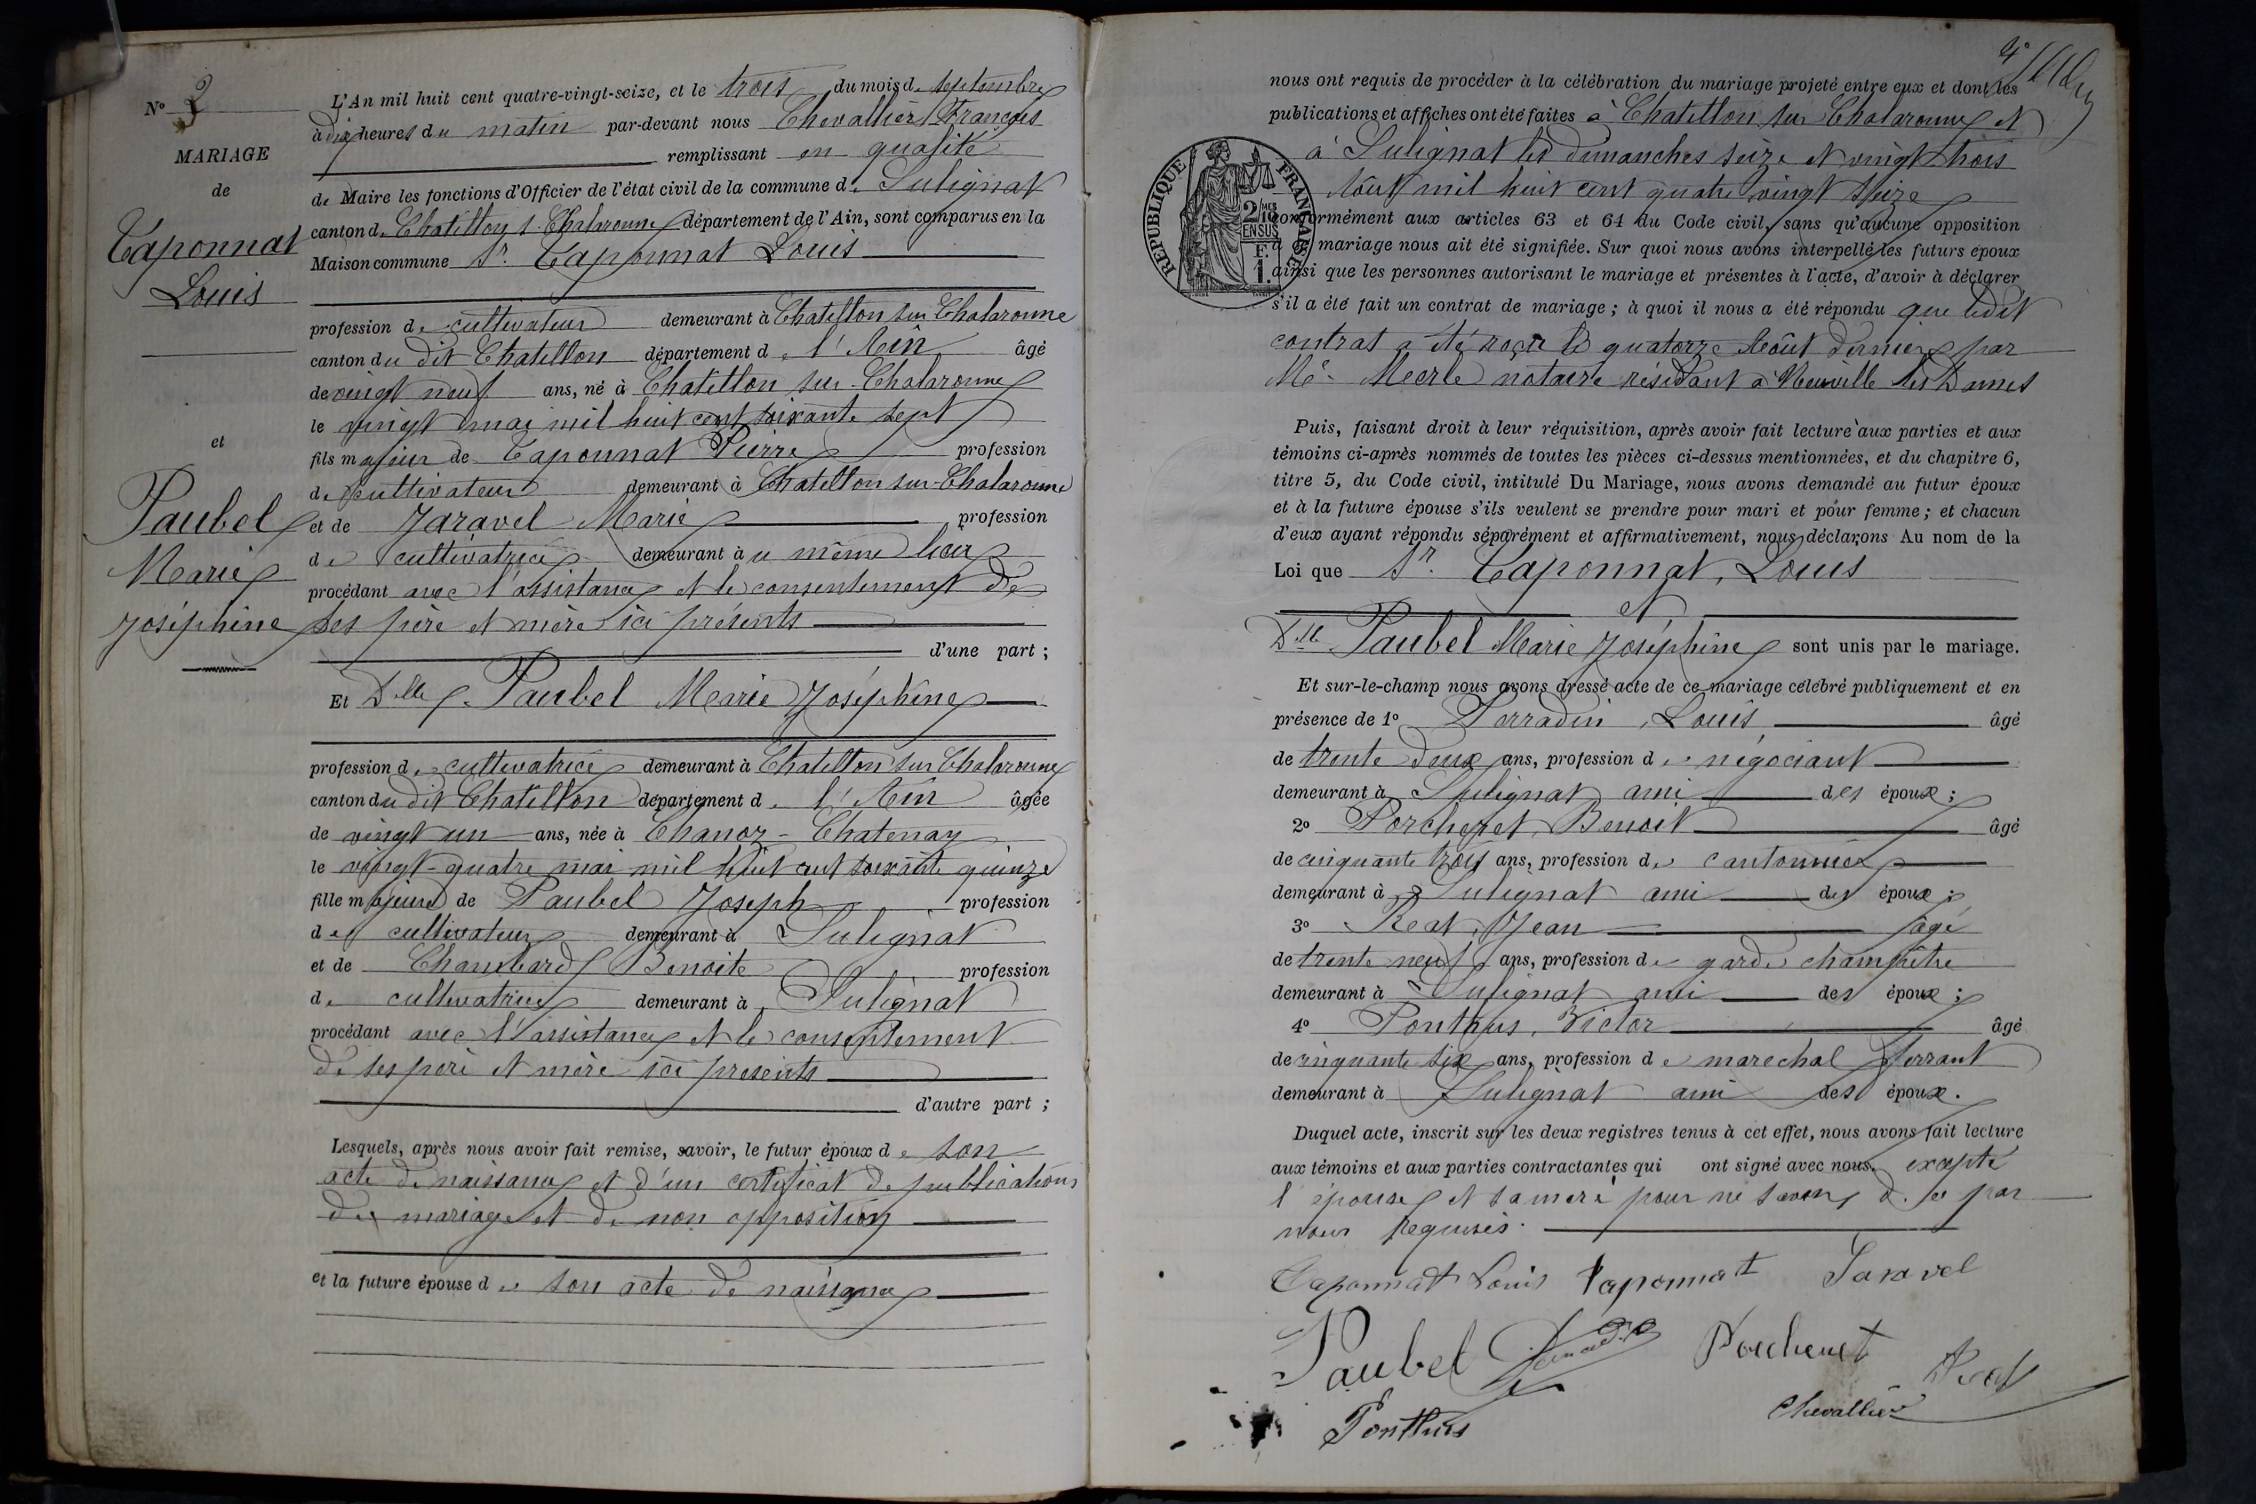 N° 3
MARIAGE
de
Taponnat
Louis
et
Paubel
Marie
Joséphine
L'An mil huit cent quatre-vingt-seize, et le trois du mois de septembre
à dix heures du matin par-devant nous Chevallier François
remplissant en qualité
de Maire les fonctions d'Officier de l'état civil de la commune de Sulignat
canton de Chatillon s. Chalaronne département de l'Ain, sont comparus en la
Maison commune Sr. Taponnat Louis
profession de cultivateur demeurant à Chatillon sur Chalaronne
canton du dit Chatillon département de l'Ain âgé
de vingt neuf ans, né à Chatillon sur Chalaronne
le vingt mai mil huit cent soixante sept
fils majeur de Taponnat Pierre profession
de cultivateur demeurant à Chatillon sur Chalaronne
et de Jaravel Marie profession
de cultivatrice demeurant au même lieu
procédant avec l'assistance et le consentement de
ses père et mère ici présents
d'une part ;
Et Delle Paubel Marie Joséphine
profession de cultivatrice demeurant à Chatillon sur Chalaronne
canton du dit Chatillon département de l'Ain âgée
de vingt un ans, née à Chanoz-Chatenay
le vingt-quatre mai mil huit cent soixante quinze
fille majeure de Paubel Joseph profession
de cultivateur demeurant à Sulignat
et de Chambard Benoite profession
de cultivatrice demeurant à Sulignat
procédant avec l'assistance et le consentement
de ses père et mère ici présents
d'autre part ;
Lesquels, après nous avoir fait remise, savoir, le futur époux de son
acte de naissance et d'un certificat de publications
de mariage et de non opposition
et la future épouse de son acte de naissance
nous ont requis de procéder à la célébration du mariage projeté entre eux et dont les
publications et affiches ont été faites à Chatillon sur Chalaronne et
à Sulignat les dimanches seize et vingt trois
Août mil huit cent quatre vingt seize
conformément aux articles 63 et 64 du Code civil, sans qu'aucune opposition
à ce mariage nous ait été signifiée. Sur quoi nous avons interpellé les futurs époux
ainsi que les personnes autorisant le mariage et présentes à l'acte, d'avoir à déclarer
s'il a été fait un contrat de mariage ; à quoi il nous a été répondu que ledit
contrat a été reçu le quatorze Août dernier par
Me. Merle notaire résidant à Neuville les Dames
Puis, faisant droit à leur réquisition, après avoir fait lecture aux parties et aux
témoins ci-après nommés de toutes les pièces ci-dessus mentionnées, et du chapitre 6,
titre 5, du Code civil, intitulé Du Mariage, nous avons demandé au futur époux
et à la future épouse s'ils veulent se prendre pour mari et pour femme ; et chacun
d'eux ayant répondu séparément et affirmativement, nous déclarons Au nom de la
Loi que Sr. Taponnat, Louis
et
Delle Paubel Marie Joséphine sont unis par le mariage.
Et sur-le-champ nous avons dressé acte de ce mariage célébré publiquement et en
présence de 1° Perradin, Louis âgé
de trente deux ans, profession de négociant
demeurant à Sulignat ami des époux ;
2° Porcheret, Benoit âgé
de cinquante trois ans, profession de cantonnier
demeurant à Sulignat ami des époux ;
3° Réat, Jean âgé
de trente neuf ans, profession de garde champêtre
demeurant à Sulignat ami des époux ;
4° Ponthus, Victor âgé
de cinquante six ans, profession de marechal ferrant
demeurant à Sulignat ami des époux.
Duquel acte, inscrit sur les deux registres tenus à cet effet, nous avons fait lecture
aux témoins et aux parties contractantes qui ont signé avec nous, excepté
l'épouse et sa mère pour ne savoir de ce par
nous requises.
Taponnat Louis Taponnat Jaravel
Paubel Porcheret Réat
Ponthus Chevallier
RÉPUBLIQUE FRANÇAISE
2/10 MES
EN SUS
F.
1.